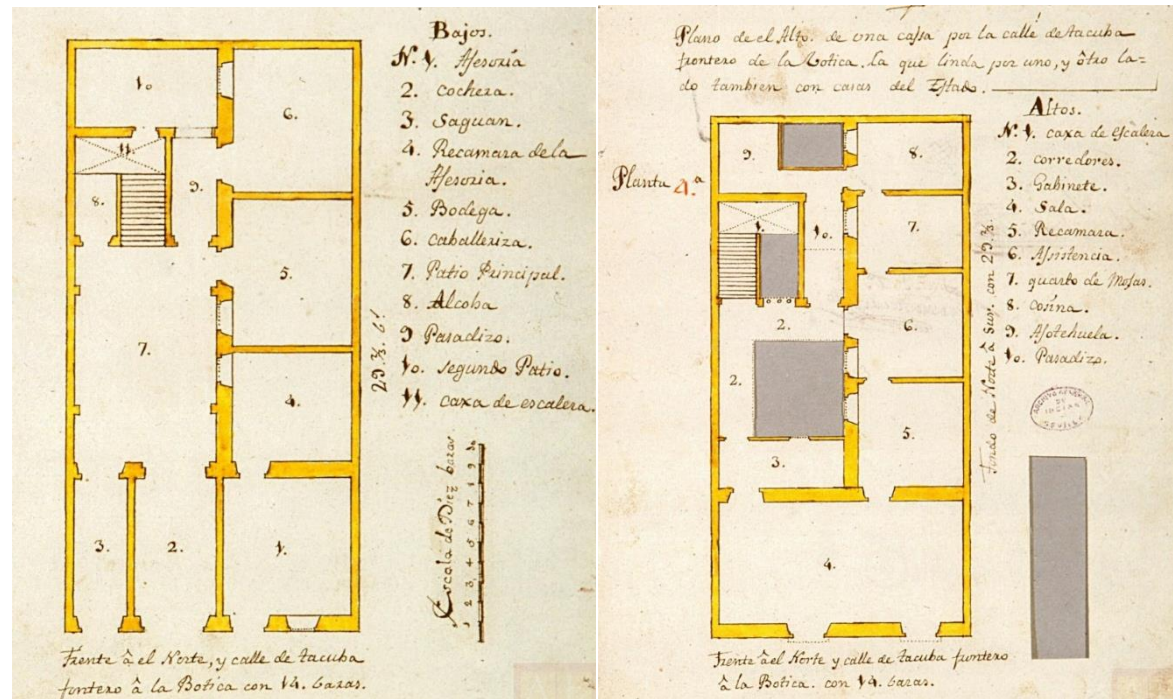 Bajos.
N.º 1. Assesoria
2. cochera.
3. Saguan.
4. Recamara de la
Assesoria.
5. Bodega.
6. caballeriza.
7. Patio Principal.
8. Alcoba
9 Pasadizo.
10. segundo Patio.
11. caxa de escalera.
10.
6.
11.
9.
8.
5.
7.
4.
3.
2.
1.
29. ⅔. 6ª
Escala de Diez baras
1 2 3 4 5 6 7 8 9 10
Frente â el Norte, y calle de tacuba
frontero â la Botica con 14. baras.
Plano de el Alto. de una cassa por la calle de tacuba
frontero de la Botica. La que linda por uno, y ôtro la-
do tambien con casas del Estado.
Planta 4.ª
Altos.
N.º 1. caxa de escalera
2. corredores.
3. Gabinete.
4. Sala.
5. Recamara.
6. Assistencia.
7. quarto de Mosas.
8. cosina.
9. Asotehuela.
10. Pasadizo.
9.
8.
1.
10.
7.
2.
6.
2.
3.
5.
4.
fondo de Norte â Sur. con 29. ⅔.
ARCHIVO GENERAL
DE
INDIAS
SEVILLA
Frente âel Norte y calle de tacuba frontero
â la Botica. con 14. baras.